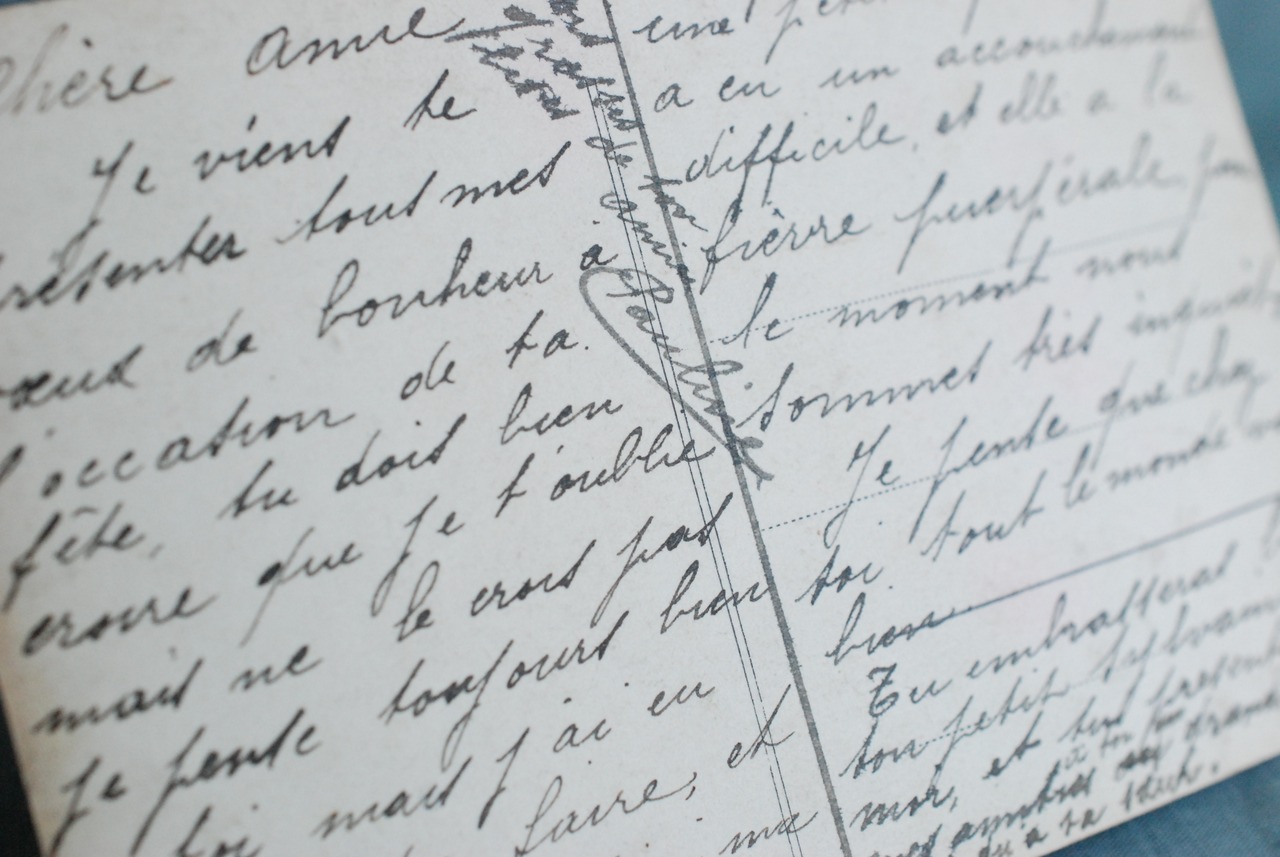 Chère amie
Je viens te
présenter tous mes
vœux de bonheur à
l'occasion de ta
fête, tu dois bien
croire que je t'oublie
mais ne le crois pas
je pense toujours bien
toi mais j'ai eu
faire, et
ma
une
a eu un accouchement
difficile, et elle a la
fièvre puerpérale, pour
le moment nous
sommes très
Je pense que chez
toi tout le monde
bien
Tu embrasseras
ton petit Sylvain
moi, et tu
mes amitiés
à ta
de ton amie
Pauline